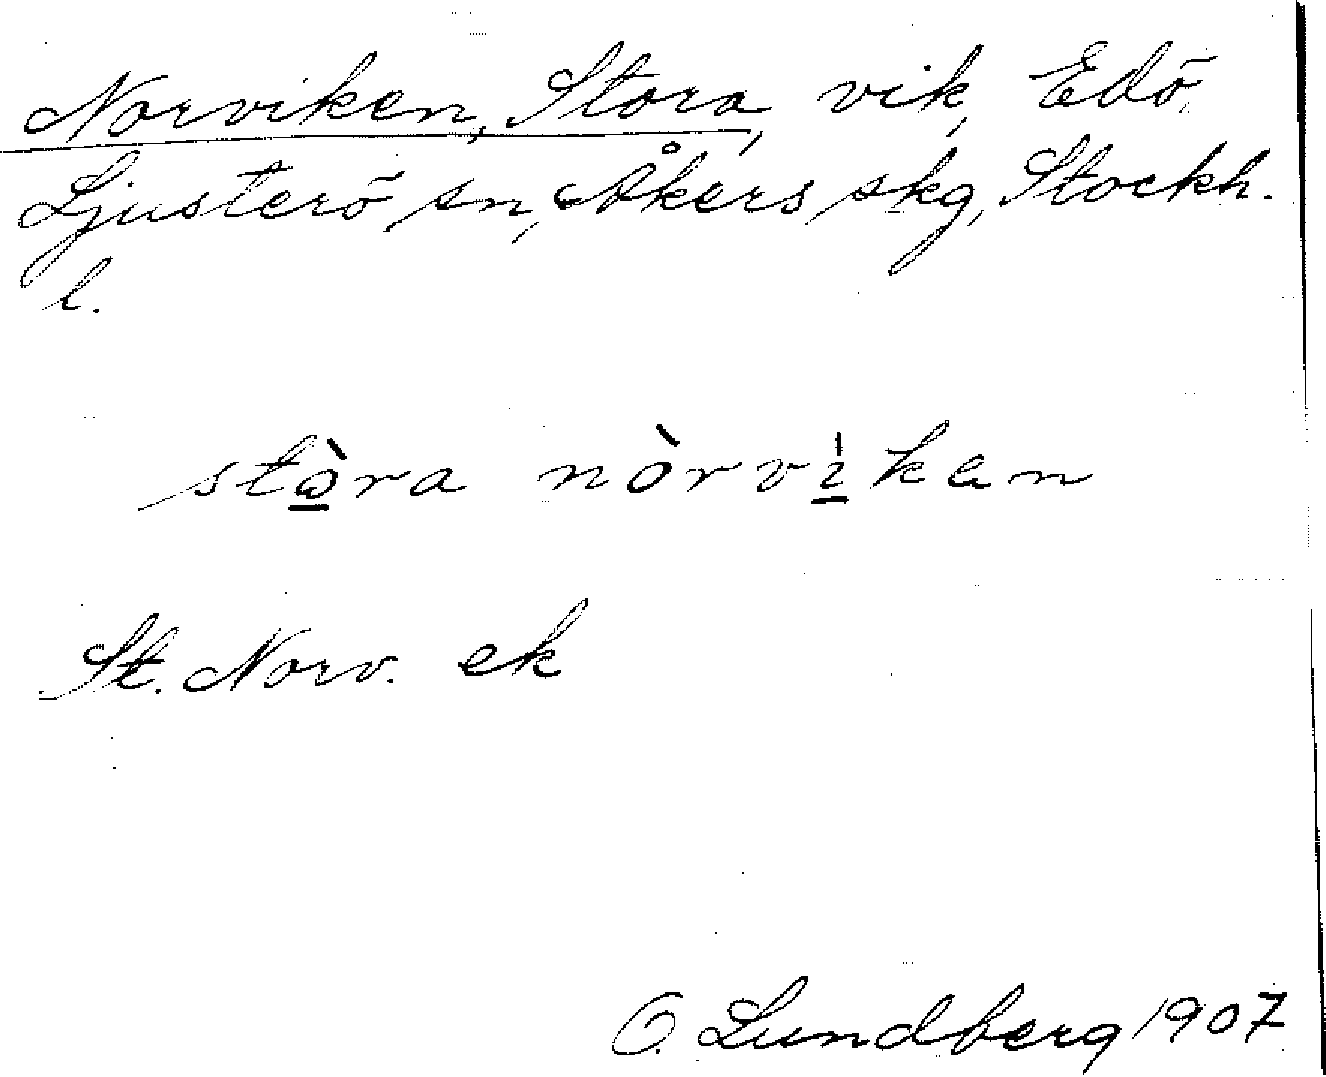 Norviken, Stora, vik, Edö,
Ljusterö sn, Åkers skg, Stockh.
l.
stò̱ra nòrvi̱̍ken
St. Norv. ek
O. Lundberg 1907